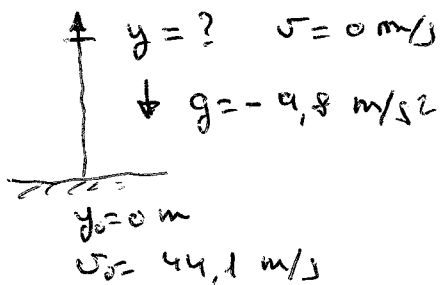 y = ? v = 0 m/s
g = - 9,8 m/s2
y0 = 0 m
v0 = 44,1 m/s